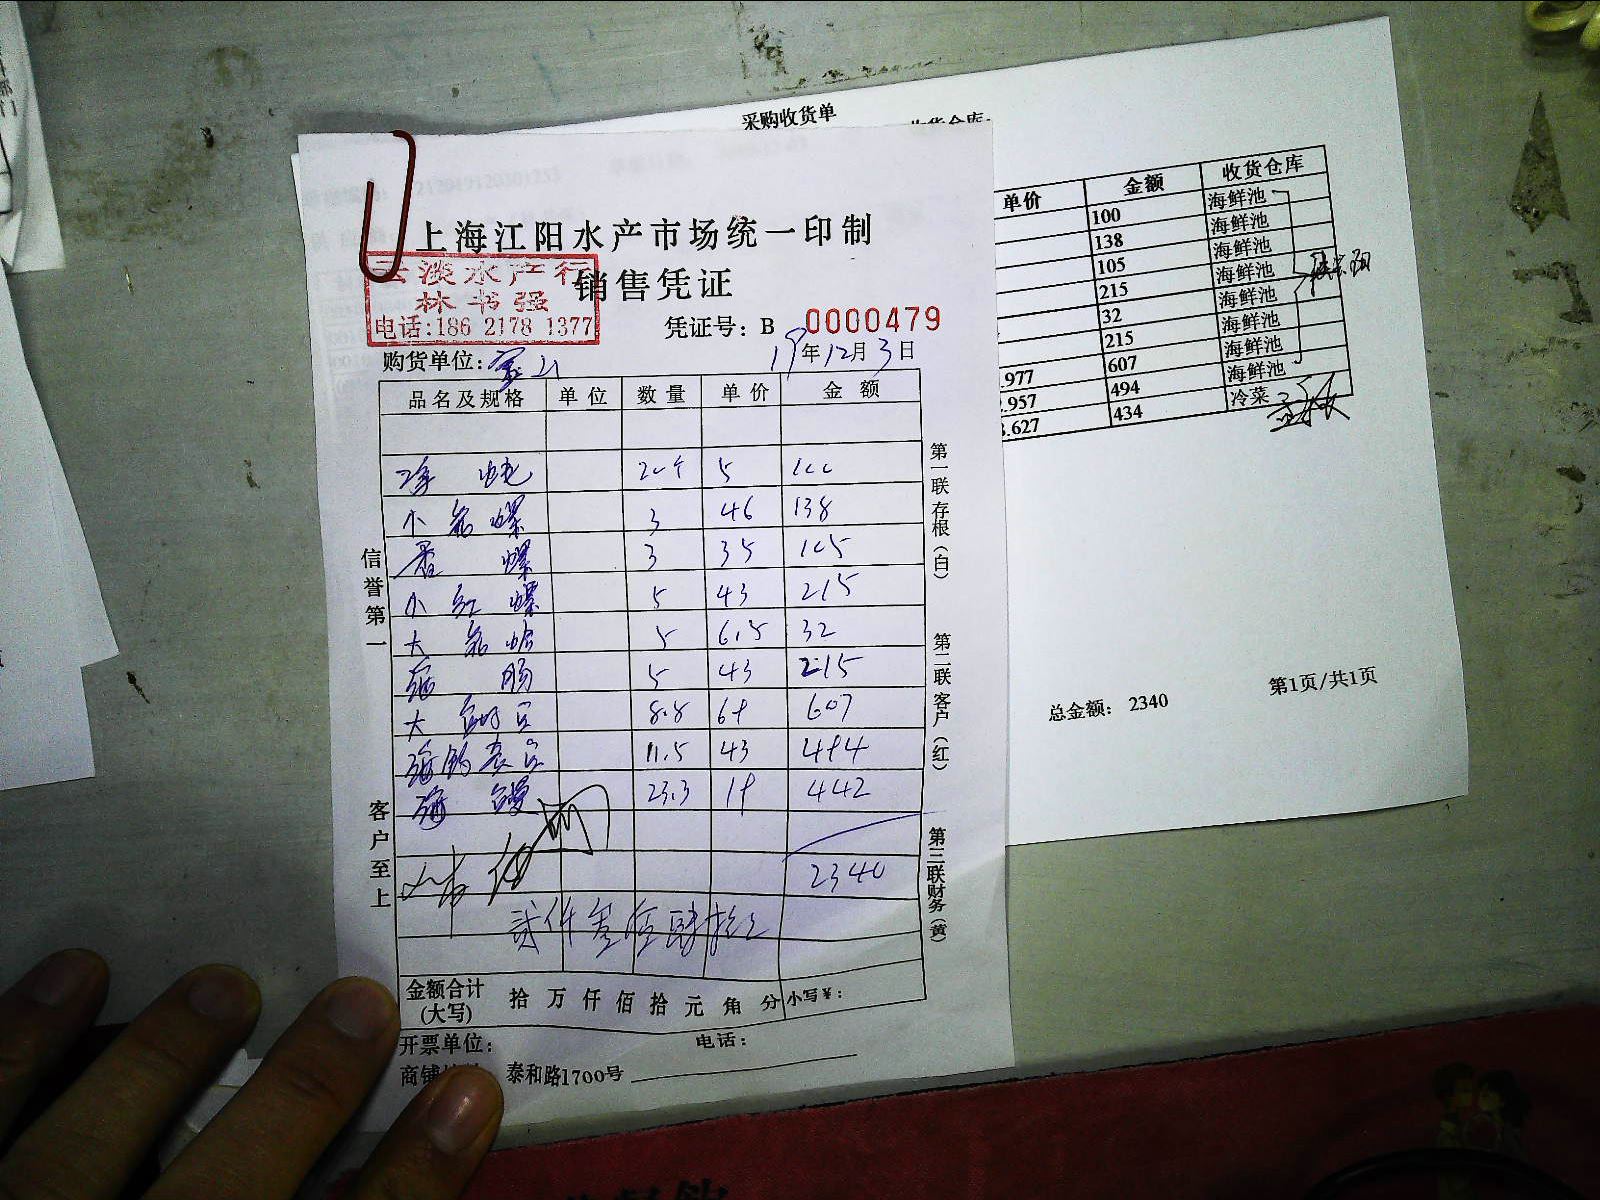 采购收货单
上海江阳水产市场统一印制
云淡水产行
林书强
电话:186 2178 1377
销售凭证
凭证号: B 0000479
购货单位: 宝山
19年12月3日
品名及规格 单位 数量 单价 金额
20个 5 100
小 螺 3 46 138
螺 3 35 105
小红螺 5 43 215
大 蛤 5 6.5 32
海肠 5 43 215
大 8.8 69 607
海 11.5 43 494
海鳗 23.3 19 442
2340
贰仟叁佰肆拾元
金额合计
(大写)
拾万仟佰拾元角分 小写￥:
开票单位: 电话:
商铺 泰和路1700号
信誉第一
客户至上
第一联存根(白)
第二联客户(红)
第三联财务(黄)
单价 金额 收货仓库
100 海鲜池
138 海鲜池
105 海鲜池
215 海鲜池
32 海鲜池
215 海鲜池
.977 607 海鲜池
.957 494 海鲜池
.627 434 冷菜
总金额: 2340
第1页/共1页